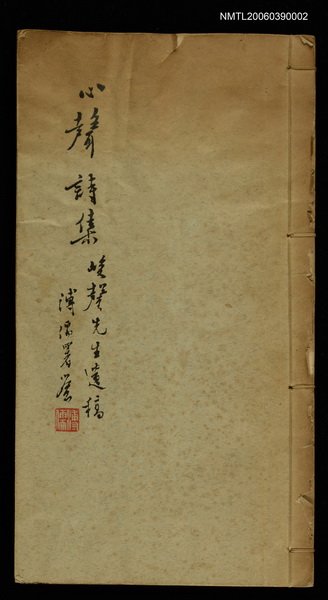 NMTL20060390002
心聲詩集
先生遺稿
溥儒署